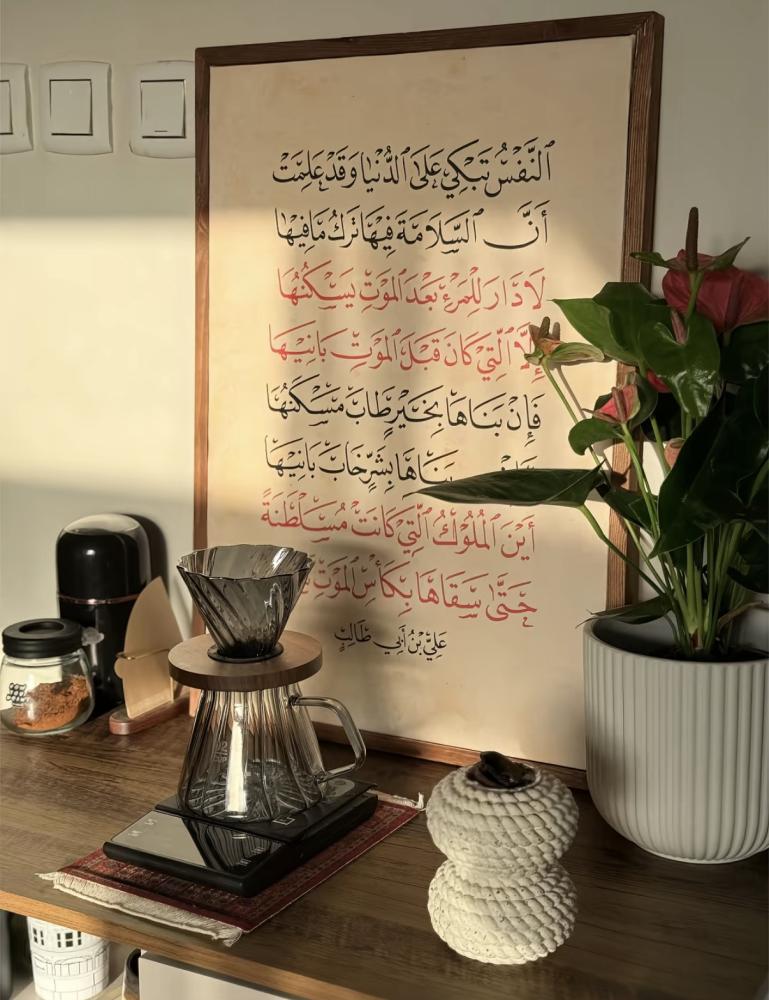 النَّفْسُ تَبْكِي عَلَى الدُّنْيَا وَقَدْ عَلِمَتْ
أَنَّ السَّلَامَةَ فِيهَا تَرْكُ مَا فِيهَا
لَا دَارَ لِلْمَرْءِ بَعْدَ الْمَوْتِ يَسْكُنُهَا
إِلَّا الَّتِي كَانَ قَبْلَ الْمَوْتِ بَانِيْهَا
فَإِنْ بَنَاهَا بِخَيْرٍ طَابَ مَسْكَنُهَا
بَنَاهَا بِشَرٍّ خَابَ بَانِيْهَا
أَيْنَ الْمُلُوْكُ الَّتِي كَانَتْ مُسَلْطَنَةً
حَتَّى سَقَاهَا بِكَأْسِ الْمَوْتِ
عَلِيُّ بْنُ أَبِي طَالِبٍ